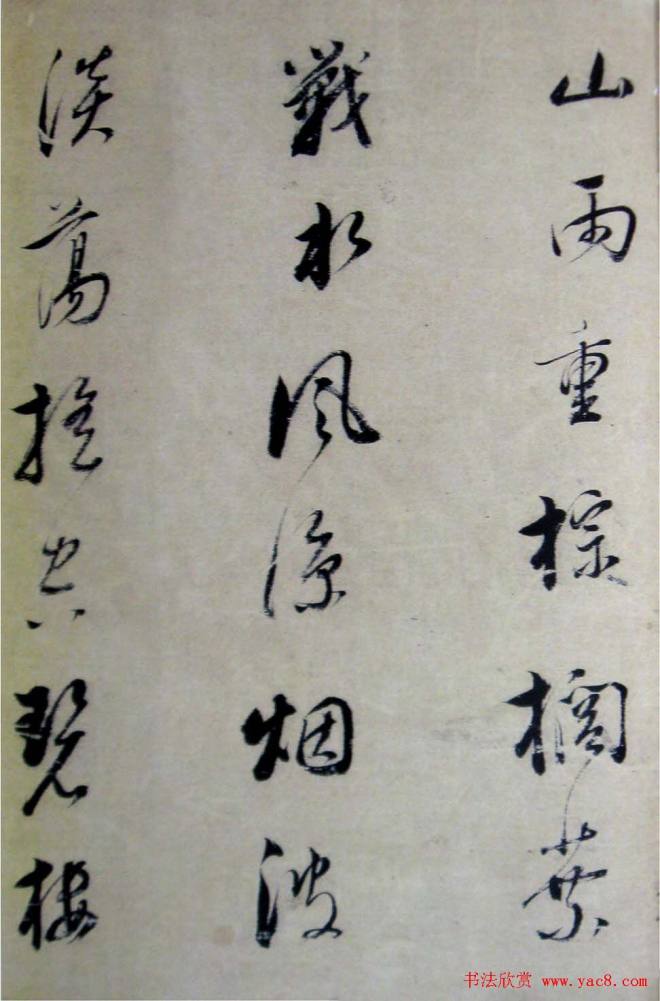 山雨重棕櫚葉
戰水風涼烟波
淡蕩搖空碧樓
书法欣赏 www.yac8.com